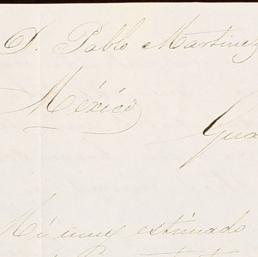 D. Pablo Martinez
México
Gua
Mi muy estimado